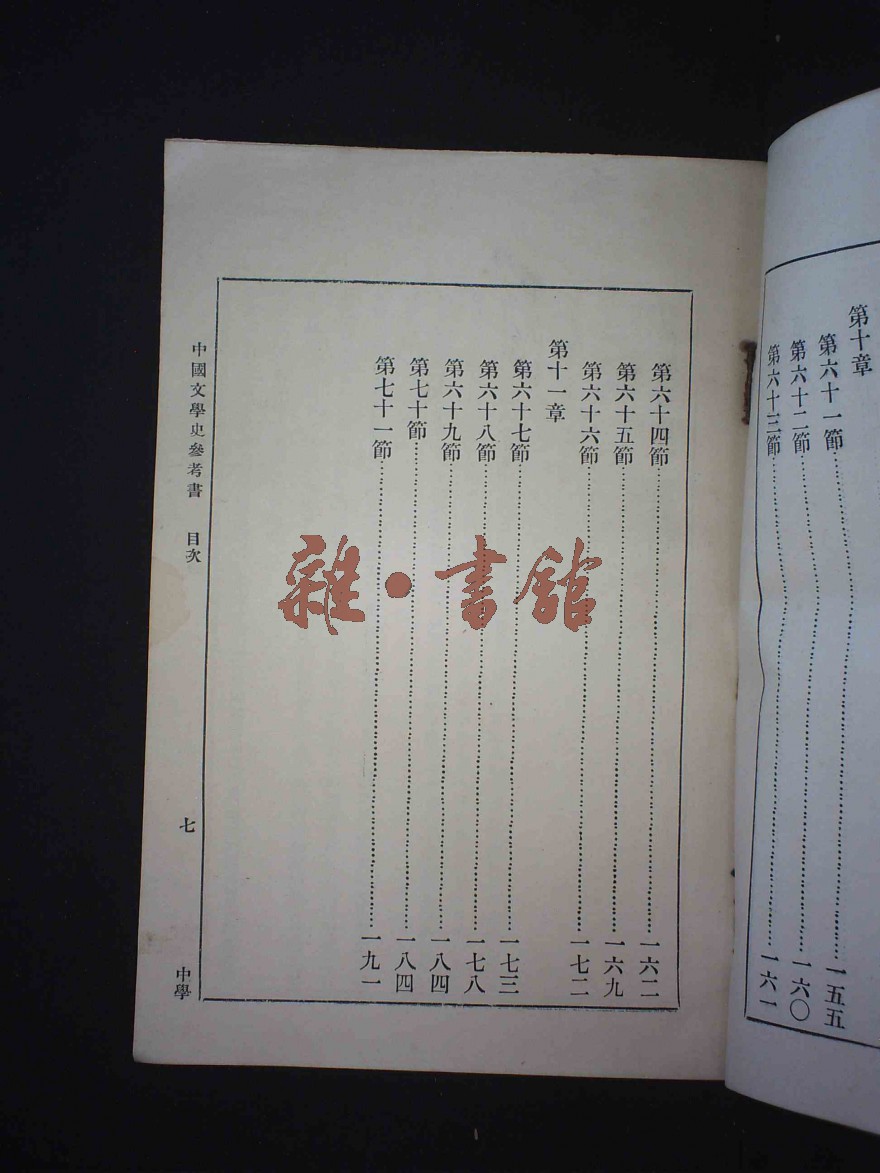 第十章
第六十一節……一五五
第六十二節……一六〇
第六十三節……一六一
第六十四節……一六二
第六十五節……一六九
第六十六節……一七二
第十一章
第六十七節……一七三
第六十八節……一七八
第六十九節……一八四
第七十節……一八四
第七十一節……一九一
中國文學史參考書 目次 七 中學
雜·書館